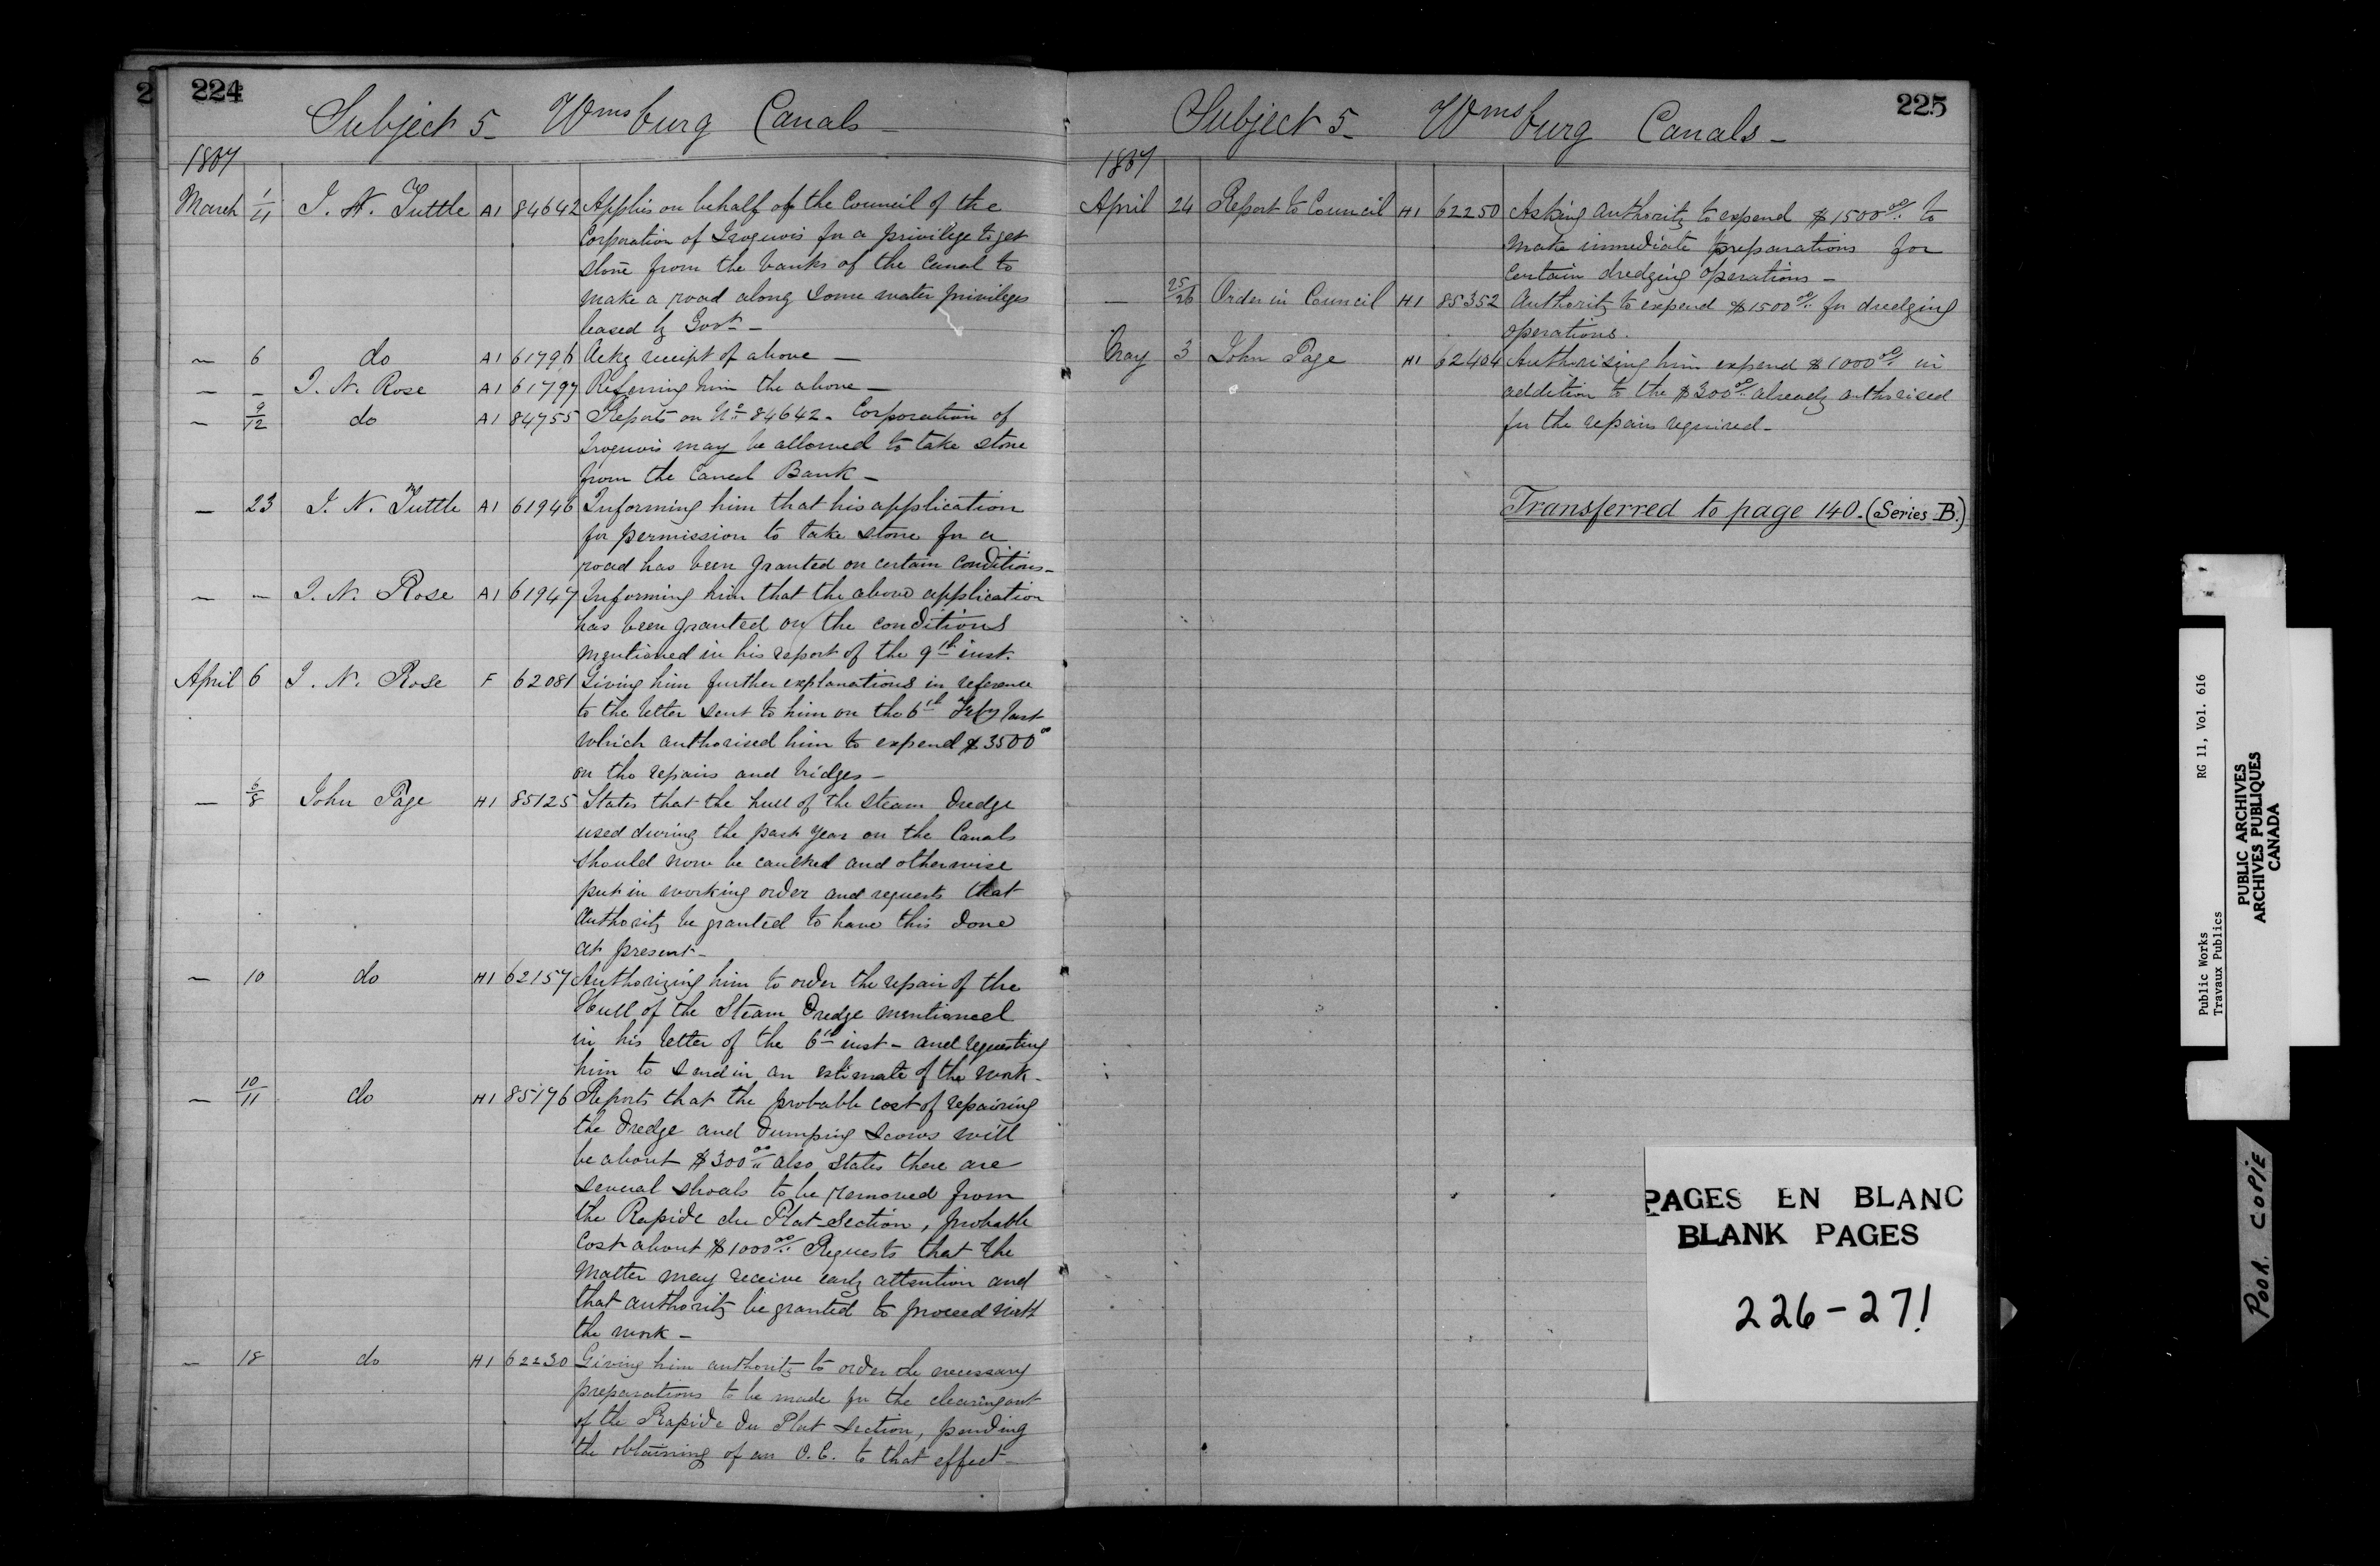 2
224
Subject 5_ Wmsburg Canals_
1867
March 1/11 I. N. Tuttle A1 84642 Applies on behalf of the Council of the
Corporation of Iroquois for a privilege to get
stone from the banks of the Canal to
make a road along some water privileges
leased by Govt_
— 6 do A1 61796 Ackg receipt of above —
— — I. N. Rose A1 61797 Referring him the above —
— 9/12 do A1 84755 Reports on No 84642_ Corporation of
Iroquois may be allowed to take stone
from the Canal Bank —
— 23 I. N. Tuttle A1 61946 Informing him that his application
for permission to take stone for a
road has been granted on certain conditions_
— — I. N. Rose A1 61947 Informing him that the above application
has been granted on the conditions
mentioned in his report of the 9th inst.
April 6 I. N. Rose F 62081 Giving him further explanations in reference
to the letter sent to him on the 6th Feby last
which authorised him to expend $3500 00
on the repairs and bridges_
— 6/8 John Page H1 85125 States that the hull of the steam Dredge
used during the past year on the Canals
should now be caulked and otherwise
put in working order and requests that
authority be granted to have this done
at present_
— 10 do H1 62157 Authorizing him to order the repair of the
Hull of the Steam Dredge mentioned
in his letter of the 6th inst_ and requesting
him to send in an estimate of the work_
— 10/11 do H1 85176 Reports that the probable cost of repairing
the Dredge and Dumping Scows will
be about $300 00 also states there are
several shoals to be removed from
the Rapide du Plat Section, probable
Cost about $1000 00 Requests that the
matter may receive early attention and
that authority be granted to proceed with
the work_
— 18 do H1 62230 Giving him authority to order the necessary
preparations to be made for the clearing out
of the Rapide du Plat Section, pending
the obtaining of an O.C. to that effect_
225
Subject 5_ Wmsburg Canals_
1867
April 24 Report to Council H1 62250 Asking authority to expend $1500 00 to
make immediate preparations for
certain dredging operations_
— 25/26 Order in Council H1 85352 Authority to expend $1500 00 for dredging
operations.
May 3 John Page H1 62404 Authorising him expend $1000 00 in
addition to the $300 00 already authorised
for the repairs required_
Transferred to page 140. (Series B.)
PAGES EN BLANC
BLANK PAGES
226-271
Public Works RG 11, Vol. 616
Travaux Publics
PUBLIC ARCHIVES
ARCHIVES PUBLIQUES
CANADA
POOR COPIE